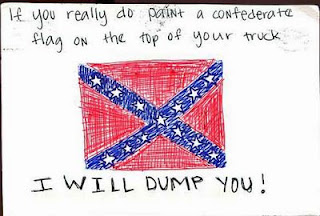 If you really do paint a confederate
flag on the top of your truck
I WILL DUMP YOU!